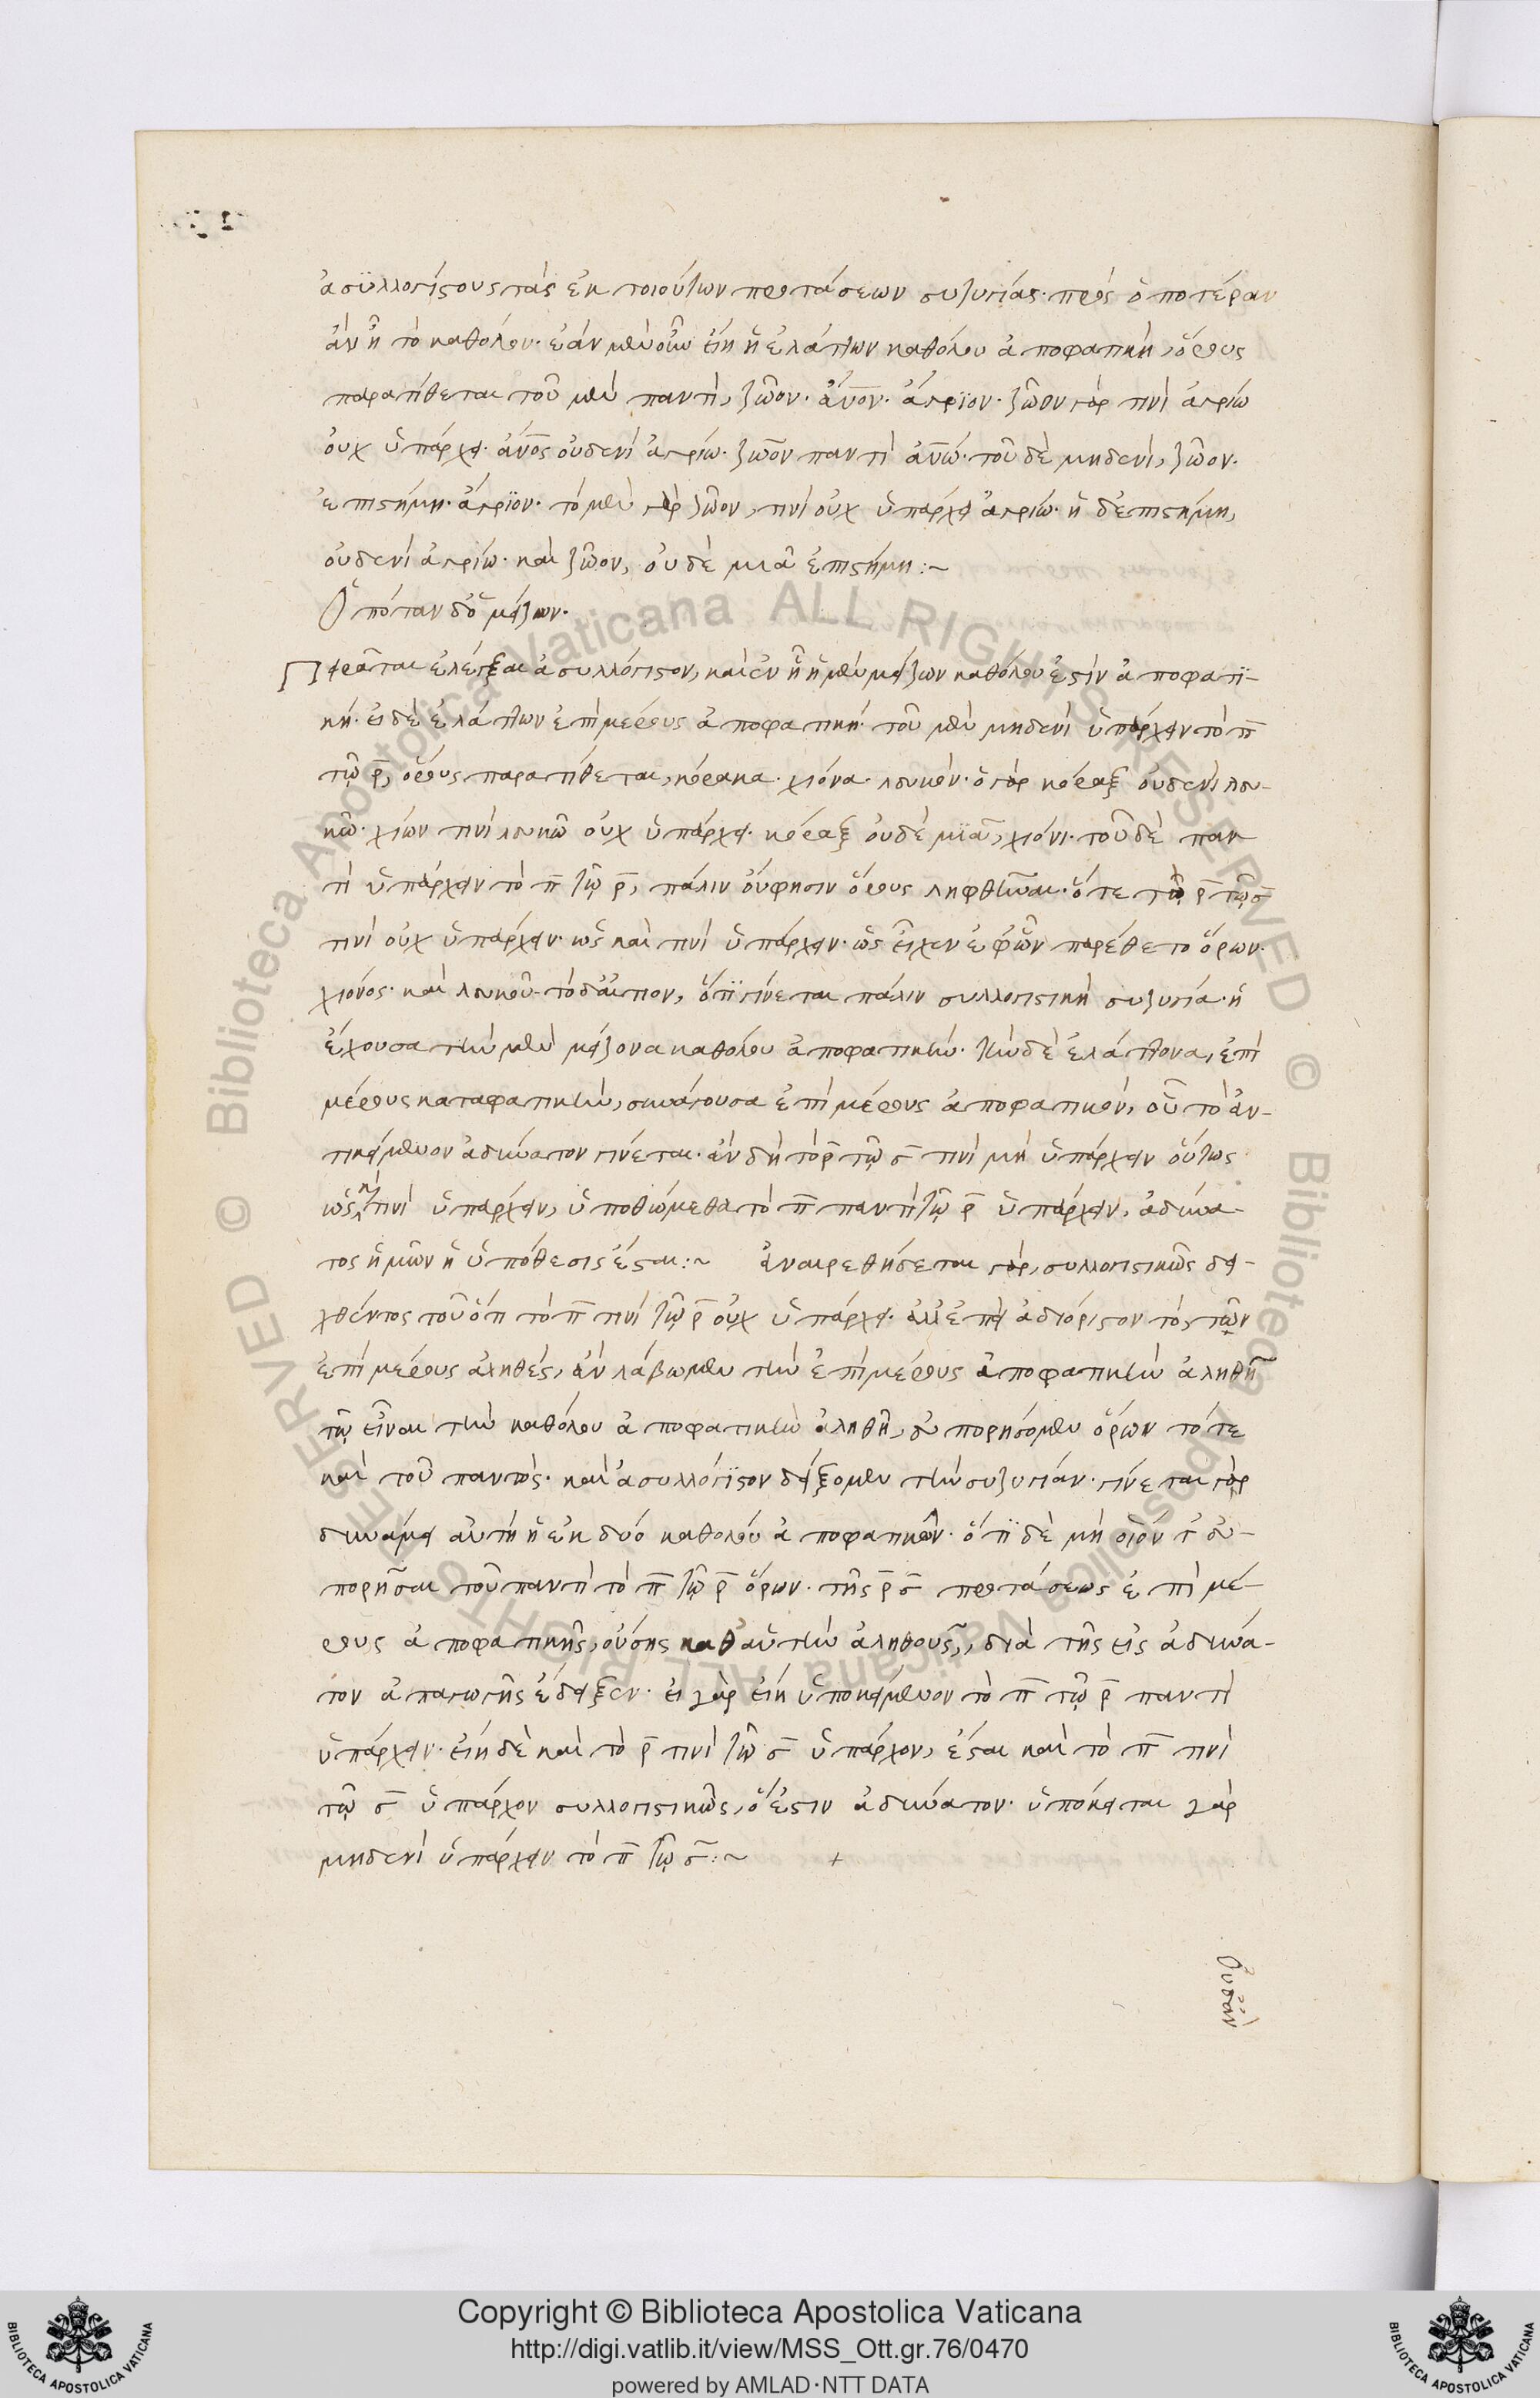 ἀσϋλλογίστους τὰς ἐκ τοιούτων προτάσεων συζυγίας· πρὸς ὁποτέραν
ἂν ἦ τὸ καθόλου· ἐὰν μὲν οὖν εἴη ἡ ἐλάττων καθόλου ἀποφατικὴ, ὅρους
παρατίθεται τοῦ μὲν παντὶ, ζῶον· ἄνον· ἄγρϊον· ζῶον γὰρ τινὶ ἀγρίω
οὐχ ὑπάρχει· ἄνος οὐδενὶ ἀγρίω· ζῶον παντὶ ἀνω· τοῦ δὲ μηδενὶ, ζῶον·
ἐπιστήμη· ἄγρϊον· τὸ μὲν γὰρ ζῶον, τινὶ οὐχ ὑπάρχει ἀγρίω· ἡ δ' ἐπιστήμη,
οὐδενὶ ἀγρίω· καὶ ζῶον, οὐδὲ μιᾶ ἐπιστήμη :~
Ὁπόταν δ' ὁ μείζων·
Πειρᾶται ἐλέγξαι ἀσυλλόγιστον, καὶ ἐν ἧ ἡ μὲν μείζων καθόλου ἐστὶν ἀποφατϊ-
κή· εἰ δὲ ἐλάττων ἐπιμέρους ἀποφατική· τοῦ μὲν μηδενὶ ὑπάρχειν τὸ π
τῶ ρ, ὅρους παρατίθεται, κόρακα· χιόνα· λευκόν· ὁ γὰρ κόραξ οὐδενὶ λευ-
κῶ· χιὼν τινὶ λευκῶ οὐχ ὑπάρχει· κόραξ οὐδὲ μϊᾶ, χιόνι· τοῦ δὲ παν
τὶ ὑπάρχειν τὸ π τῶ ρ, πάλιν οὔ φησιν ὅρους ληφθῆναι· ὅτε τὸ ρ τῶ σ
τινὶ οὐχ ὑπάρχειν· ὡς καὶ τινὶ ὑπάρχειν· ὡς εἶχεν ἐφ' ὧν παρέθετο ὅρων·
χιόνος· καὶ λευκοῦ· τὸ δ' αἴτιον, ὅτϊ γίνεται πάλιν συλλογιστικὴ συζυγία· ἡ
ἔχουσα τὴν μὲν μείζονα καθόλου ἀποφατικὴν· τὴν δὲ ἐλάττονα, ἐπὶ
μέρους καταφατικὴν, συνάγουσα ἐπὶ μέρους ἀποφατικόν, οὗ τὸ ἀν-
τικείμενον ἀδύνατον γίνεται· ἂν δὴ τὸ ρ τῶ σ τινὶ μὴ ὑπάρχειν οὕτως
ὡς κ τινὶ ὑπάρχειν, ὑποθώμεθα τὸ π παντὶ τῶ ρ ὑπάρχειν, ἀδύνα-
τος ἡμῖν ἡ ὑπόθεσις ἔσται :~ ἀναιρεθήσεται γὰρ, συλλογιστικῶς δει-
χθέντος τοῦ ὅτι τὸ π τινὶ τῶ ρ οὐχ ὑπάρχει· ἀλλ' ἐπεὶ ἀδιόριστον τὸ, τῶν
ἐπὶ μέρους ἀληθές, ἂν λάβωμεν τὴν ἐπὶ μέρους ἀποφατικὴν ἀληθῆ
τῶ εἶναι τὴν καθόλου ἀποφατικὴν ἀληθῆ, εὐπορήσομεν ὅρων τότε
καὶ τοῦ παντὸς· καὶ ἀσυλλόγϊστον δείξομεν τὴν συζυγίαν· γίνεται γὰρ
δυνάμει αὕτη ἡ ἐκ δύο καθόλου ἀποφατικῶν· ὅτϊ δὲ μὴ οἷόν τ' εὐ-
πορῆσαι τοῦ παντὶ τὸ π τῶ ρ ὅρων· τῆς ρ σ προτάσεως ἐπὶ μέ-
ρους ἀποφατικῆς, οὔσης καθ' αὑτὴν ἀληθοῦς, διὰ τῆς εἰς ἀδύνα-
τον ἀπαγωγῆς ἔδειξεν· εἰ γὰρ εἴη ὑποκείμενον τὸ π τῶ ρ παντὶ
ὑπάρχειν· εἴη δὲ καὶ τὸ ρ τινὶ τῶ σ ὑπάρχον, ἔσται καὶ τὸ π τινὶ
τῶ σ ὑπάρχον συλλογιστικῶς, ὅ ἐστιν ἀδύνατον· ὑπόκειται γὰρ
μηδενὶ ὑπάρχειν τὸ π τῶ σ :~ +
Copyright © Biblioteca Apostolica Vaticana
http://digi.vatlib.it/view/MSS_Ott.gr.76/0470
powered by AMLAD·NTT DATA
BIBLIOTECA APOSTOLICA VATICANA
BIBLIOTECA APOSTOLICA VATICANA
© Biblioteca Apostolica Vaticana ALL RIGHTS RESERVED © Biblioteca Apostolica Vaticana ALL RIGHTS RESERVED